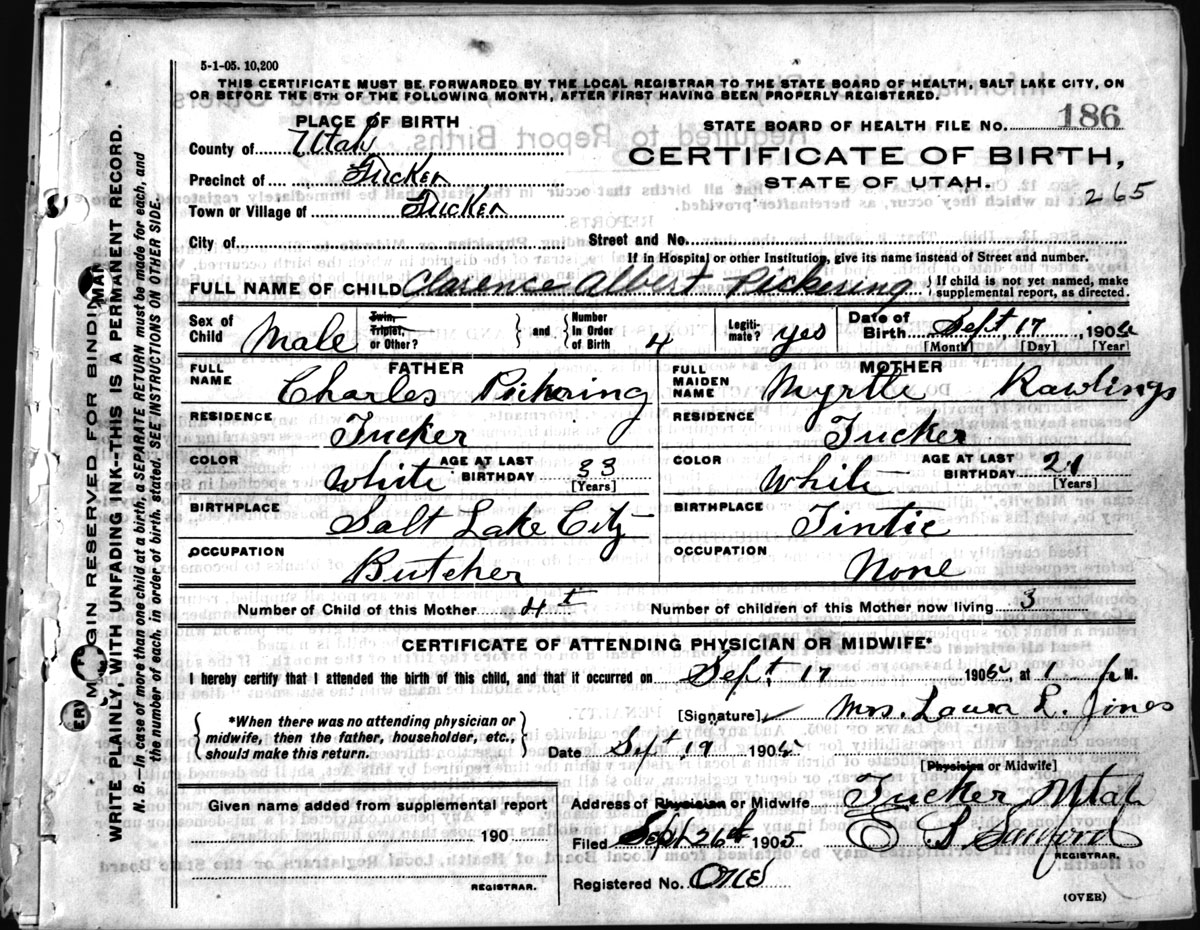 5-1-05. 10,200
THIS CERTIFICATE MUST BE FORWARDED BY THE LOCAL REGISTRAR TO THE STATE BOARD OF HEALTH, SALT LAKE CITY, ON
OR BEFORE THE 5TH OF THE FOLLOWING MONTH, AFTER FIRST HAVING BEEN PROPERLY REGISTERED.
PLACE OF BIRTH
STATE BOARD OF HEALTH FILE NO. 186
County of Utah
CERTIFICATE OF BIRTH,
Precinct of Tucker
STATE OF UTAH.
265
Town or Village of Tucker
City of Street and No.
If in Hospital or other Institution, give its name instead of Street and number.
FULL NAME OF CHILD Clarence Albert Pickering { If child is not yet named, make
supplemental report, as directed.
Sex of Child Male Twin, Triplet, or Other? } and { Number In Order of Birth 4 Legiti- mate? yes Date of Birth Sept 17, 190
[Month] [Day] [Year]
FATHER MOTHER
FULL NAME Charles Pickering FULL MAIDEN NAME Myrtle Rawlings
RESIDENCE Tucker RESIDENCE Tucker
COLOR White AGE AT LAST BIRTHDAY 33 [Years] COLOR White AGE AT LAST BIRTHDAY 21 [Years]
BIRTHPLACE Salt Lake City BIRTHPLACE Tintic
OCCUPATION Butcher OCCUPATION None
Number of Child of this Mother 4th Number of children of this Mother now living 3
CERTIFICATE OF ATTENDING PHYSICIAN OR MIDWIFE*
I hereby certify that I attended the birth of this child, and that it occurred on Sept. 17 1905, at 1 P M.
{ *When there was no attending physician or
midwife, then the father, householder, etc.,
should make this return. }
[Signature] Mrs. Laura L. Jones
Date Sept 19 1905
[Physician or Midwife]
Given name added from supplemental report
190
REGISTRAR.
Address of Physician or Midwife Tucker Utah
Filed Sept 26th 1905 E S Sanford
REGISTRAR.
Registered No. One
(OVER)
MARGIN RESERVED FOR BINDING
WRITE PLAINLY, WITH UNFADING INK--THIS IS A PERMANENT RECORD.
N. B.--In case of more than one child at a birth, a SEPARATE RETURN must be made for each, and
the number of each, in order of birth, stated. (SEE INSTRUCTIONS ON OTHER SIDE.